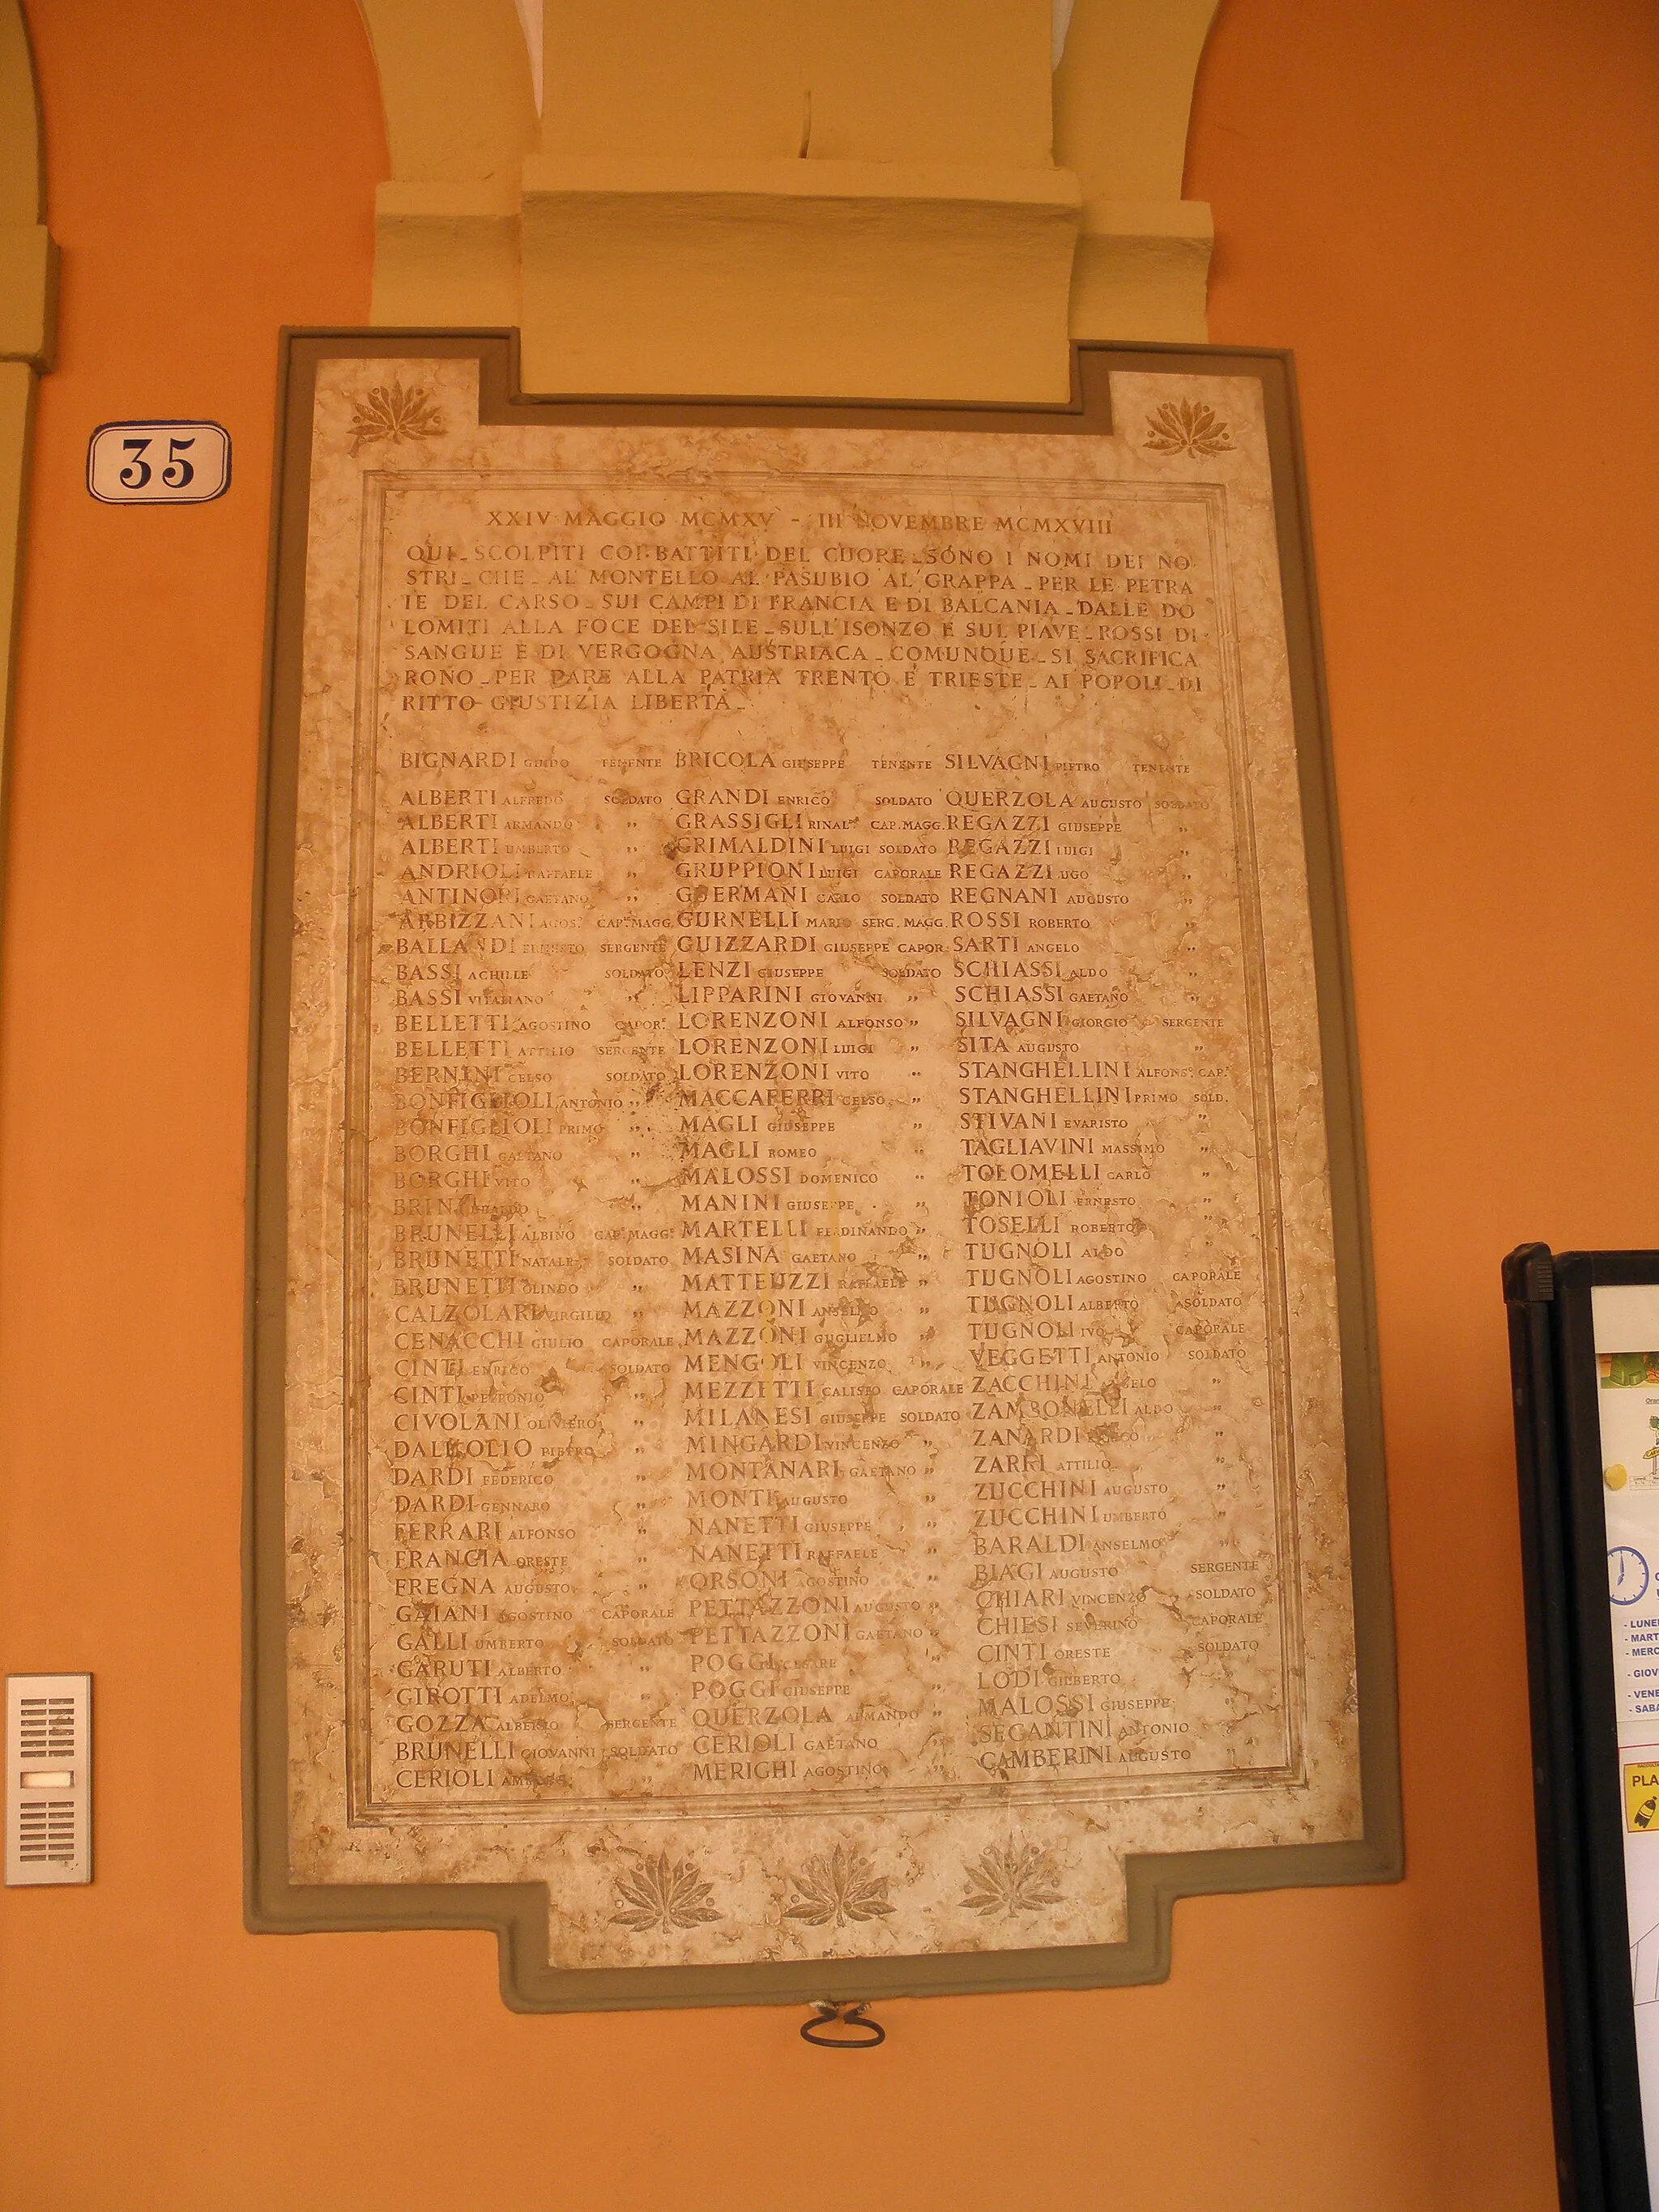 35
XXIV MAGGIO MCMXV - III NOVEMBRE MCMXVIII
QUI - SCOLPITI COI BATTITI DEL CUORE - SONO I NOMI DEI NO
STRI - CHE - AL MONTELLO AL PASUBIO AL GRAPPA - PER LE PETRA
IE DEL CARSO - SUI CAMPI DI FRANCIA E DI BALCANIA - DALLE DO
LOMITI ALLA FOCE DEL SILE - SULL'ISONZO E SUL PIAVE - ROSSI DI
SANGUE E DI VERGOGNA AUSTRIACA - COMUNQUE - SI SACRIFICA
RONO - PER DARE ALLA PATRIA TRENTO E TRIESTE - AI POPOLI - DI
RITTO GIUSTIZIA LIBERTÀ -
BIGNARDI GUIDO TENENTE BRICOLA GIUSEPPE TENENTE SILVAGNI PIETRO TENENTE
ALBERTI ALFREDO SOLDATO GRANDI ENRICO SOLDATO QUERZOLA AUGUSTO SOLDATO
ALBERTI ARMANDO " GRASSIGLI RINAL° CAP.MAGG. REGAZZI GIUSEPPE "
ALBERTI UMBERTO " GRIMALDINI LUIGI SOLDATO REGAZZI LUIGI "
ANDRIOLI RAFFAELE " GRUPPIONI LUIGI CAPORALE REGAZZI UGO "
ANTINORI GAETANO " GUERMANI CARLO SOLDATO REGNANI AUGUSTO "
ARBIZZANI AGOS° CAP.MAGG. GURNELLI MARIO SERG.MAGG. ROSSI ROBERTO "
BALLANDI ERNESTO SERGENTE GUIZZARDI GIUSEPPE CAPOR. SARTI ANGELO "
BASSI ACHILLE SOLDATO LENZI GIUSEPPE SOLDATO SCHIASSI ALDO "
BASSI VITALIANO " LIPPARINI GIOVANNI " SCHIASSI GAETANO "
BELLETTI AGOSTINO CAPOR. LORENZONI ALFONSO " SILVAGNI GIORGIO SERGENTE
BELLETTI ATTILIO SERGENTE LORENZONI LUIGI " SITA AUGUSTO "
BERNINI CELSO SOLDATO LORENZONI VITO " STANGHELLINI ALFONS° CAP.
BONFIGLIOLI ANTONIO " MACCAFERRI CELSO " STANGHELLINI PRIMO SOLD.
BONFIGLIOLI PRIMO " MAGLI GIUSEPPE " STIVANI EVARISTO "
BORGHI GAETANO " MAGLI ROMEO " TAGLIAVINI MASSIMO "
BORGHI VITO " MALOSSI DOMENICO " TOLOMELLI CARLO "
BRINI " MANINI GIUSEPPE " TONIOLI ERNESTO "
BRUNELLI ALBINO CAP.MAGG. MARTELLI FERDINANDO " TOSELLI ROBERTO "
BRUNETTI NATALE SOLDATO MASINA GAETANO " TUGNOLI ALDO "
BRUNETTI OLINDO " MATTEUZZI RAFFAELE " TUGNOLI AGOSTINO CAPORALE
CALZOLARI VIRGILIO " MAZZONI ANSELMO " TUGNOLI ALBERTO SOLDATO
CENACCHI GIULIO CAPORALE MAZZONI GUGLIELMO " TUGNOLI IVO CAPORALE
CINTI ENRICO SOLDATO MENGOLI VINCENZO " VEGGETTI ANTONIO SOLDATO
CINTI PETRONIO " MEZZETTI CALISTO CAPORALE ZACCHINI ANGELO "
CIVOLANI OLIVIERO " MILANESI GIUSEPPE SOLDATO ZAMBONELLI ALDO "
DALL'OLIO PIETRO " MINGARDI VINCENZO " ZANARDI "
DARDI FEDERICO " MONTANARI GAETANO " ZARRI ATTILIO "
DARDI GENNARO " MONTI AUGUSTO " ZUCCHINI AUGUSTO "
FERRARI ALFONSO " NANETTI GIUSEPPE " ZUCCHINI UMBERTO "
FRANCIA ORESTE " NANETTI RAFFAELE " BARALDI ANSELMO "
FREGNA AUGUSTO " ORSONI AGOSTINO " BIAGI AUGUSTO SERGENTE
GAIANI AGOSTINO CAPORALE PETTAZZONI AUGUSTO " CHIARI VINCENZO SOLDATO
GALLI UMBERTO SOLDATO PETTAZZONI GAETANO " CHIESI SEVERINO CAPORALE
GARUTI ALBERTO " POGGI CESARE " CINTI ORESTE SOLDATO
GIROTTI ADELMO " POGGI GIUSEPPE " LODI GILBERTO "
GOZZA ALBERTO SERGENTE QUERZOLA ARMANDO " MALOSSI GIUSEPPE "
BRUNELLI GIOVANNI SOLDATO CERIOLI GAETANO " SEGANTINI ANTONIO "
CERIOLI " MERIGHI AGOSTINO " GAMBERINI AUGUSTO "
- LUNE
- MART
- MERC
- GIOV
- VENE
- SABA
PLA